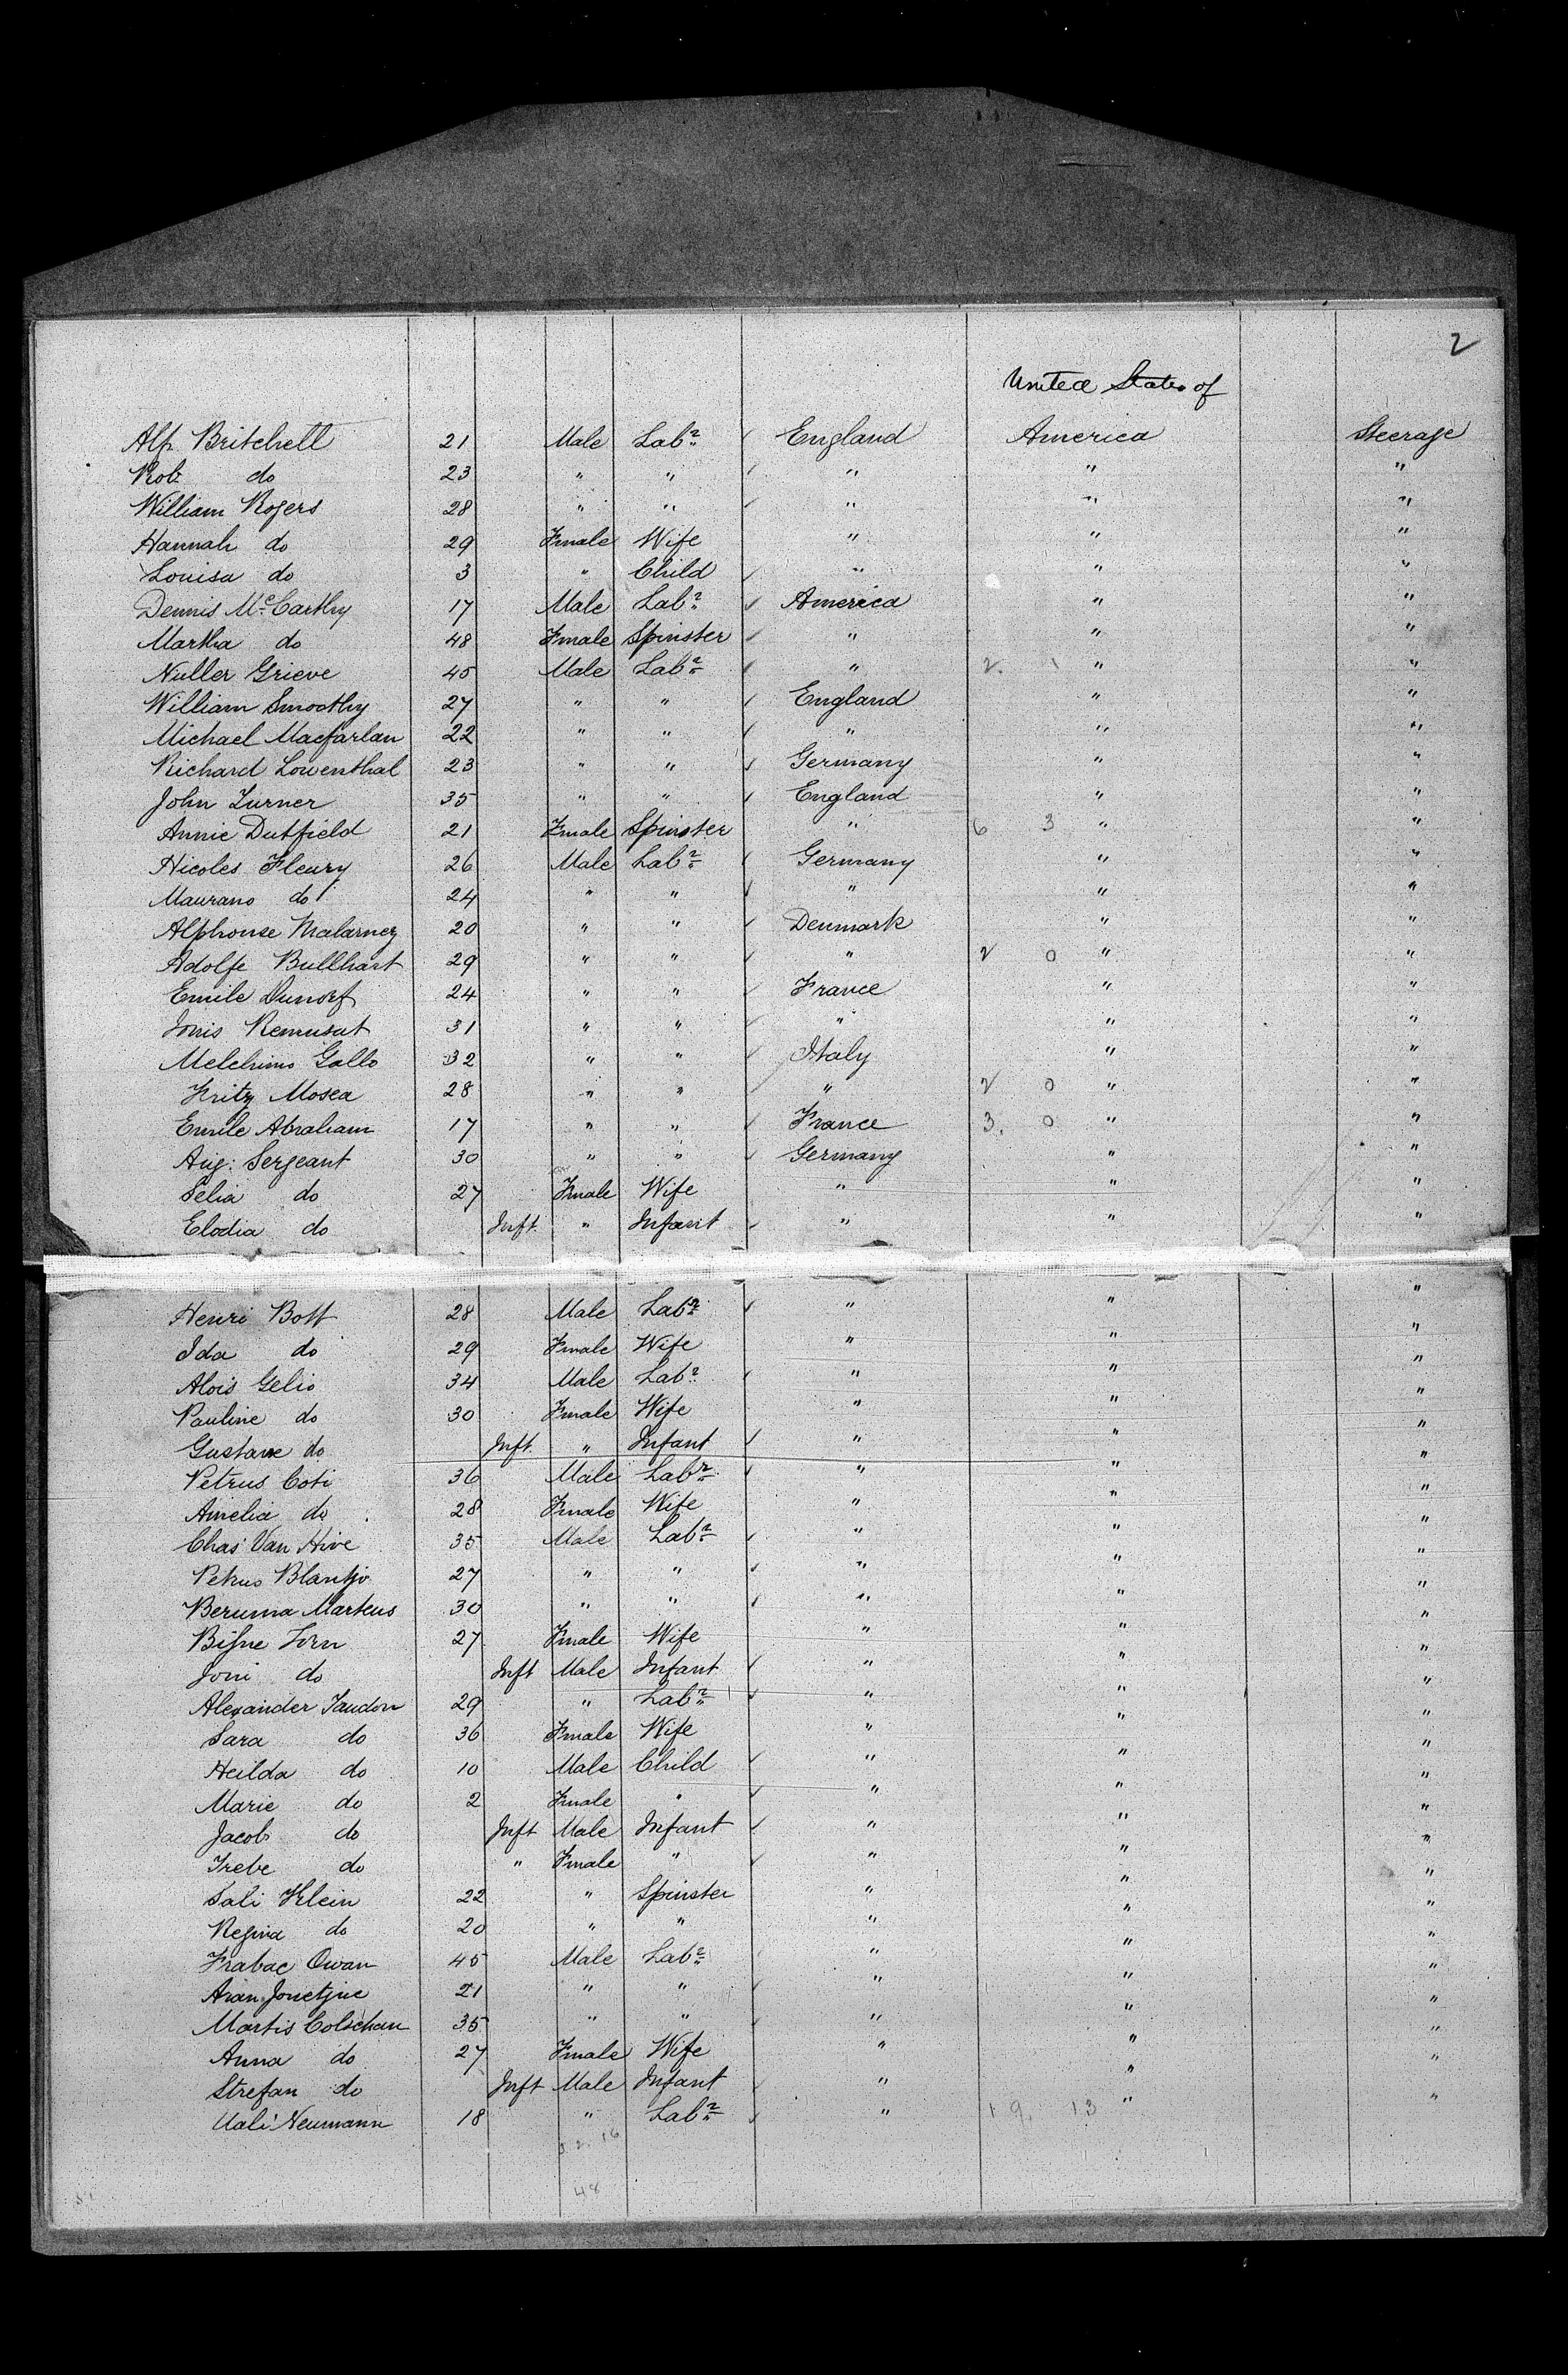 2
United States of
Alf. Britchell 21 Male Labr England America Steerage
Rob. do 23 " " " " "
William Rogers 28 " " " " "
Hannah do 29 Fmale Wife " " "
Louisa do 3 " Child " " "
Dennis McCarthy 17 Male Labr America " "
Martha do 48 Fmale Spinster " " "
Nuller Grieve 45 Male Labr " 2. 1 " "
William Smoothy 27 " " England " "
Michael Macfarlan 22 " " " " "
Richard Lowenthal 23 " " Germany " "
John Turner 35 " " England " "
Annie Dutfield 21 Fmale Spinster " 6 3 " "
Nicoles Fleury 26 Male Labr Germany " "
Maurano do 24 " " " " "
Alphonse Malarney 20 " " Denmark " "
Adolfe Bullhart 29 " " " 2 0 " "
Emile Dunorf 24 " " France " "
Louis Remusat 31 " " " " "
Melchimo Gallo 32 " " Italy " "
Fritz Mosca 28 " " " 2 0 " "
Emile Abraham 17 " " France 3. 0 " "
Aug: Sergeant 30 " " Germany " "
Selia do 27 Fmale Wife " " "
Elodia do Inft. " Infant " " "
Henri Bott 28 Male Labr " " "
Ida do 29 Fmale Wife " " "
Alois Gelio 34 Male Labr " " "
Pauline do 30 Fmale Wife " " "
Gustave do Inft. " Infant " " "
Petrus Coti 36 Male Labr " " "
Amelia do 28 Fmale Wife " " "
Chas Van Hive 35 Male Labr " " "
Petrus Blantjo 27 " " " " "
Beruma Martens 30 " " " " "
27 Fmale Wife " " "
Joni do Inft Male Infant " " "
Alexander Taudon 29 " Labr " " "
Sara do 36 Fmale Wife " " "
Heilda do 10 Male Child " " "
Marie do 2 Fmale " " " "
Jacob do Inft Male Infant " " "
Trebe do " Fmale " " " "
Sali Klein 22 " Spinster " " "
Regina do 20 " " " " "
Frabac Owan 45 Male Labr " " "
Aran Jonetjne 21 " " " " "
Martis Colschan 35 " " " " "
Anna do 27 Fmale Wife " " "
Strefan do Inft Male Infant " " "
Uali Neumann 18 " Labr " 19. 13 " "
16
48